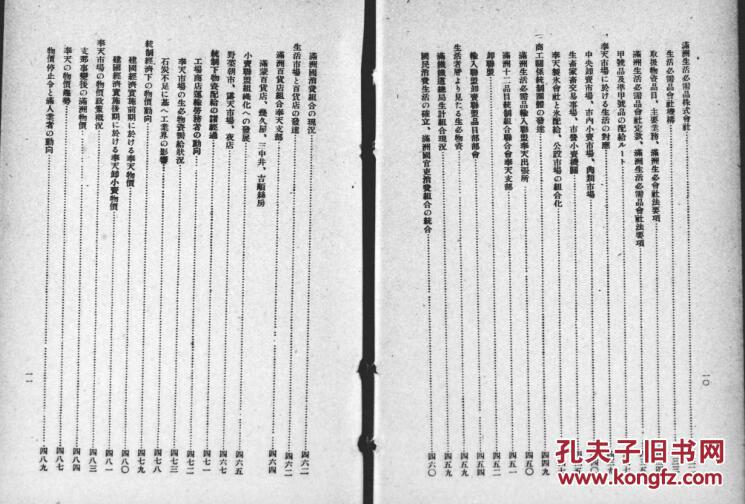 滿洲生活必需品株式會社
生活必需品會社機構
取扱物資品目、主要業務、滿洲生必會社法要項
滿洲生活必需品會社定款、滿洲生活必需品會社法要項
甲號品及準甲號品の配給ルート
奉天市場に於ける生活の對應
中央卸賣市場、市内小賣市場、肉類市場
生畜家畜交易市場、市營小賣機關
奉天製氷會社と氷配給、公設市場の組合化
商工關係統制團體の發達 四四九
滿洲生活必需品輸入聯盟奉天出張所 四五〇
滿洲十二品目統制組合聯合會奉天支部 四五一
卸聯盟 四五二
輸入聯盟卸賣聯盟品目部部會 四五四
生活者層より見たる生必物資 四五九
滿鐵鐵道總局生計組合現況 四五九
國民消費生活の確立、滿洲國官吏消費組合の統合 四六〇
一〇
滿洲國消費組合の現況 四六二
生活市場と百貨店の發達 四六二
滿洲百貨店組合奉天支部 四六四
滿蒙百貨店、幾久屋、三中井、吉順絲房
小賣聯盟組織化への發展
野菜朝市、露天市場、夜店 四六五
統制下物資配給の諸經過 四七一
工場商店落輪勞務者の動向 四七二
奉天市場の生必物資需給狀況 四七三
石炭不足に基く工業界の影響 四七七
統制經濟下の物價動向 四七九
建國經濟實施前期に於ける奉天物價 四八〇
建國經濟實施後期に於ける奉天卸小賣物價 四八一
奉天市場の物價政策概況 四八三
支那事變後の滿洲物價 四八六
奉天の物價趨勢 四八七
物價停止令と滿人業者の動向 四八九
一一
孔夫子旧书网
www.kongfz.com